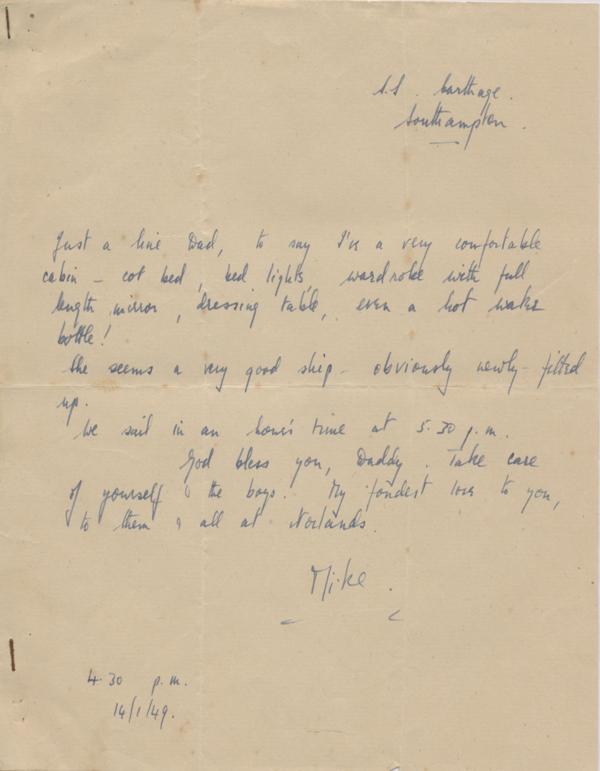 S.S. Carthage.
Southampton.
Just a line Dad, to say I've a very comfortable
cabin – cot bed, bed lights, wardrobe with full
length mirror, dressing table, even a hot water
bottle!
She seems a very good ship – obviously newly-fitted
up.
We sail in an hour's time at 5.30 p.m.
God bless you, Daddy. Take care
of yourself & the boys. My fondest love to you,
to them & all at Norlands.
Mike.
4.30 p.m.
14/1/49.